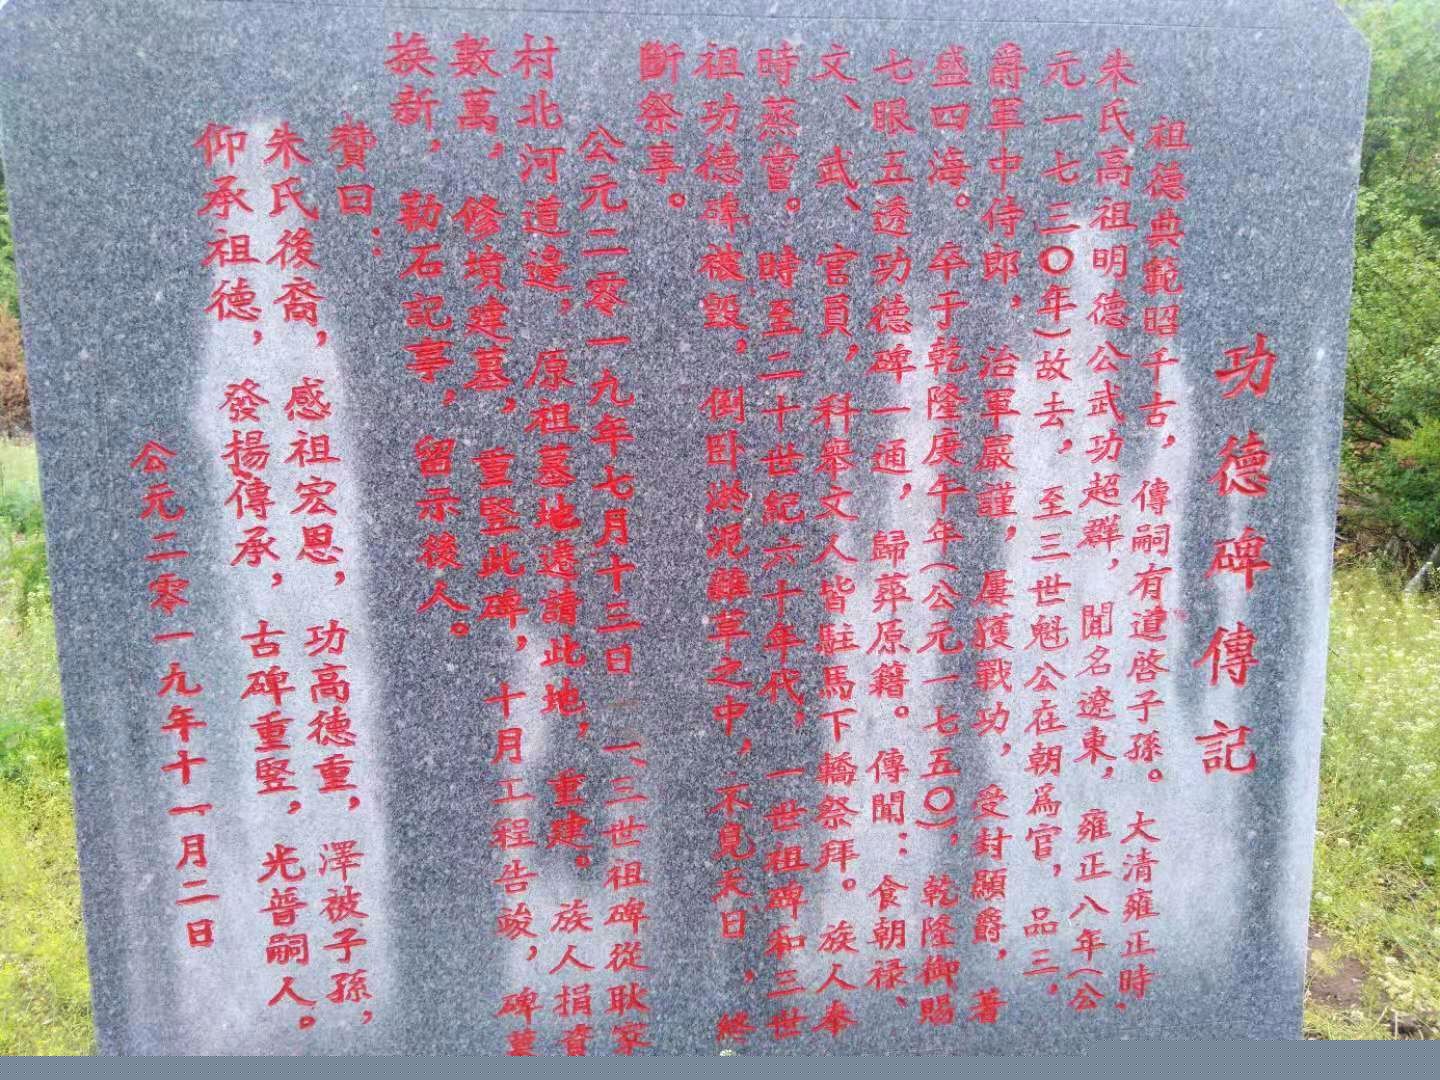 功德碑傳記
祖德典範昭千古，傳嗣有道啓子孫。大清雍正時，
朱氏高祖明德公武功超群，聞名遼東，雍正八年（公
元一七三〇年）故去，至三世魁公在朝爲官，品三，
爵軍中侍郎，治軍嚴謹，屢獲戰功，受封顯爵，著
盛四海。卒于乾隆庚午年（公元一七五〇），乾隆御賜
七眼五透功德碑一通，歸葬原籍。傳聞：食朝祿、
文、武、官員，科舉文人皆駐馬下轎祭拜。族人奉
時蒸嘗。時至二十世紀六十年代，一世祖碑和三世
祖功德碑被毀，倒卧淤泥雜草之中，不見天日，終
斷祭享。
公元二零一九年七月十三日一、三世祖碑從耿家
村北河道邊，原祖墓地遷請此地，重建。族人捐資
數萬，修墳建墓，重竪此碑，十月工程告竣，碑墓
换新，勒石記事，留示後人。
贊曰：
朱氏後裔，感祖宏恩，功高德重，澤被子孫，
仰承祖德，發揚傳承，古碑重竪，光普嗣人。
公元二零一九年十一月二日